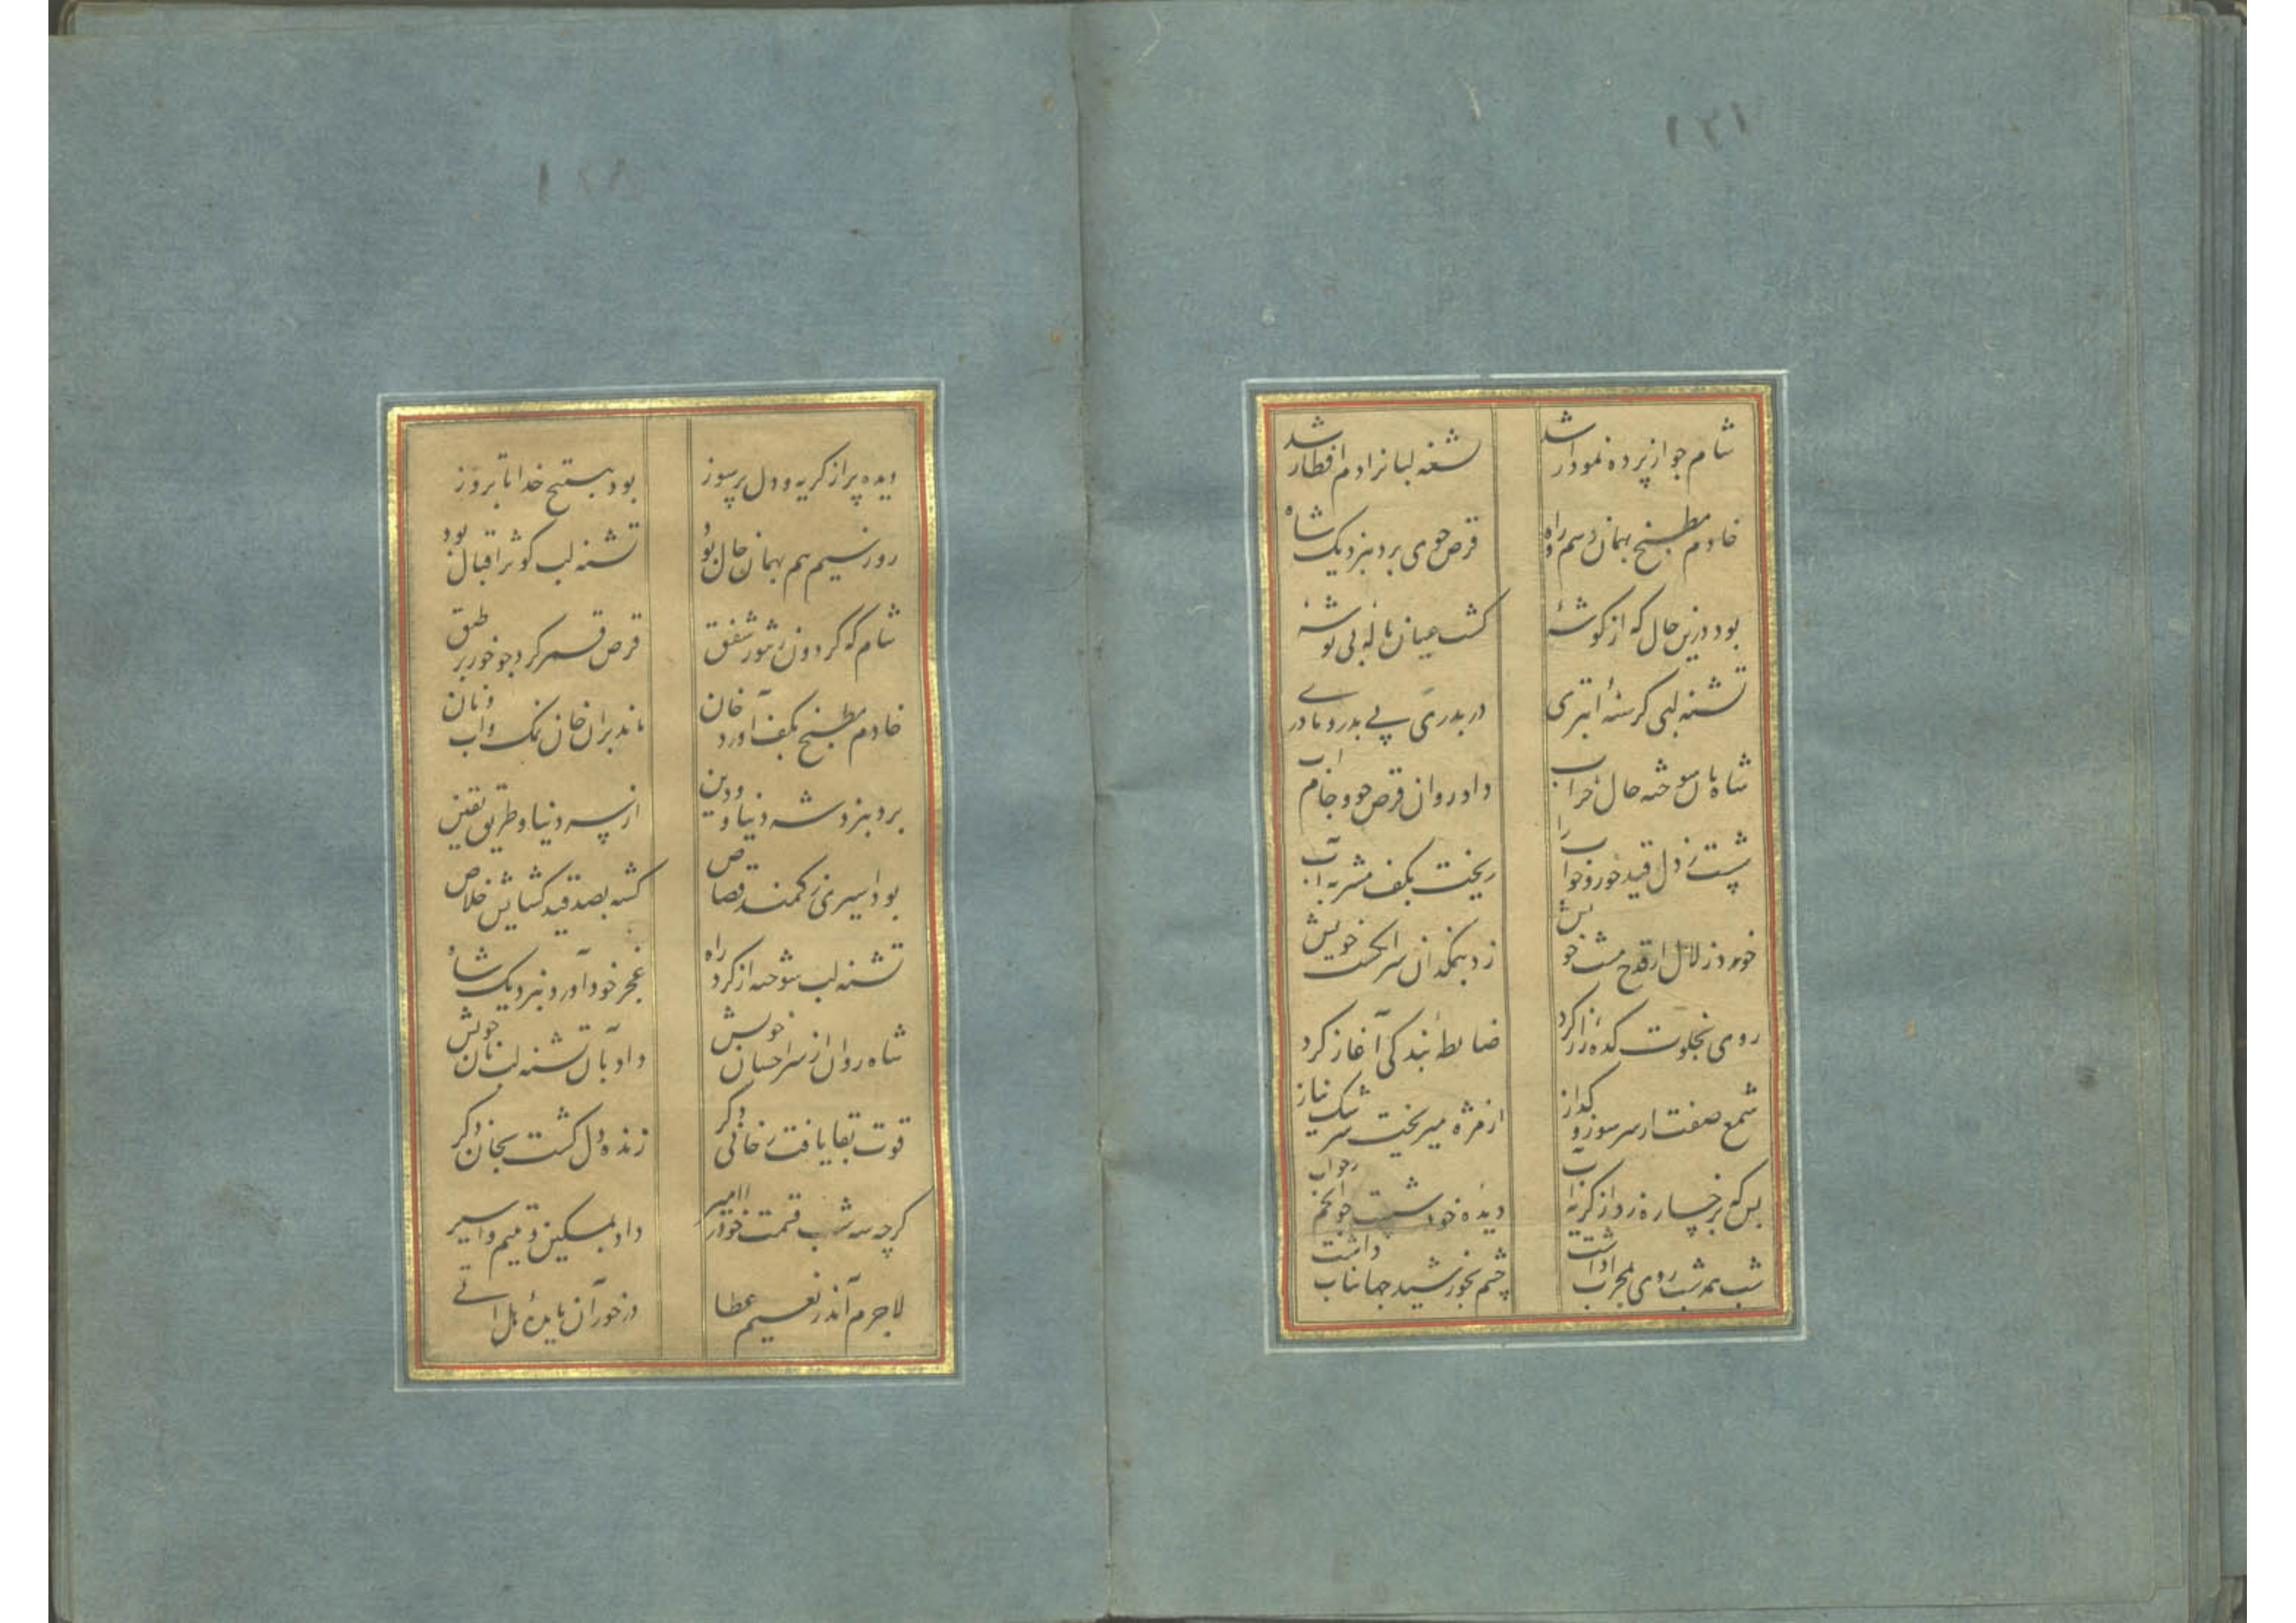 ۱۳۱
شام چو از پرده نمودار شد تشنه لبانرا دم افطار شد
خادم مطبخ بهمان رسم و راه قرص جوی برد بنزدیک شاه
بود درین حال که از کوشهٔ کشت عیان نالهٔ بی توشهٔ
تشنه لبی کرسنهٔ ابتری در بدری بی پدر و مادری
شاه بآن سوخته حال خراب داد روان قرص جو و جام اب
شست ز دل قید خور و خواب را ریخت بکف مشربه آب
خورد زلال از قدح مشت خویش زد بنمکدان سر انکشت خویش
روی بخلوت کده راز کرد ضابطهٔ بندکی آغاز کرد
شمع صفت از سر سوز و کداز از مژه میریخت سرشک نیاز
بس که برخساره زد از کریه آب دیدهٔ خود شست چو انجم ز خواب
شب همه شب روی بمحراب داشت چشم بخورشید جهانتاب داشت
دیده پر از کریه و دل پر ز سوز بود بتسبیح خدا تا بروز
روز سیم هم بهمان حال بود تشنه لب کوثر اقبال بود
شام که کردون ز شور شفق قرص قمر کرد چو خور بر طبق
خادم مطبخ بکف آورد خان ماند بران خان نمک و اب و نان
برد بنزد شه دنیا و دین از پس دنیا و طریق یقین
بود اسیری ز کمند قصاص کشته بصد قید کشایش خلاص
تشنه لب سوخته از کرد راه عجز خود آورد بنزدیک شاه
شاه روان از سر احسان خویش داد بآن تشنه لب نان خویش
قوت بقا یافت ز خانی دکر زنده دل کشت بجان دکر
کرچه سه شب قسمت خود ان امیر داد بمسکین و یتیم و اسیر
لاجرم آمد ز نعیم عطا در خور آن مایدهٔ هل اتی